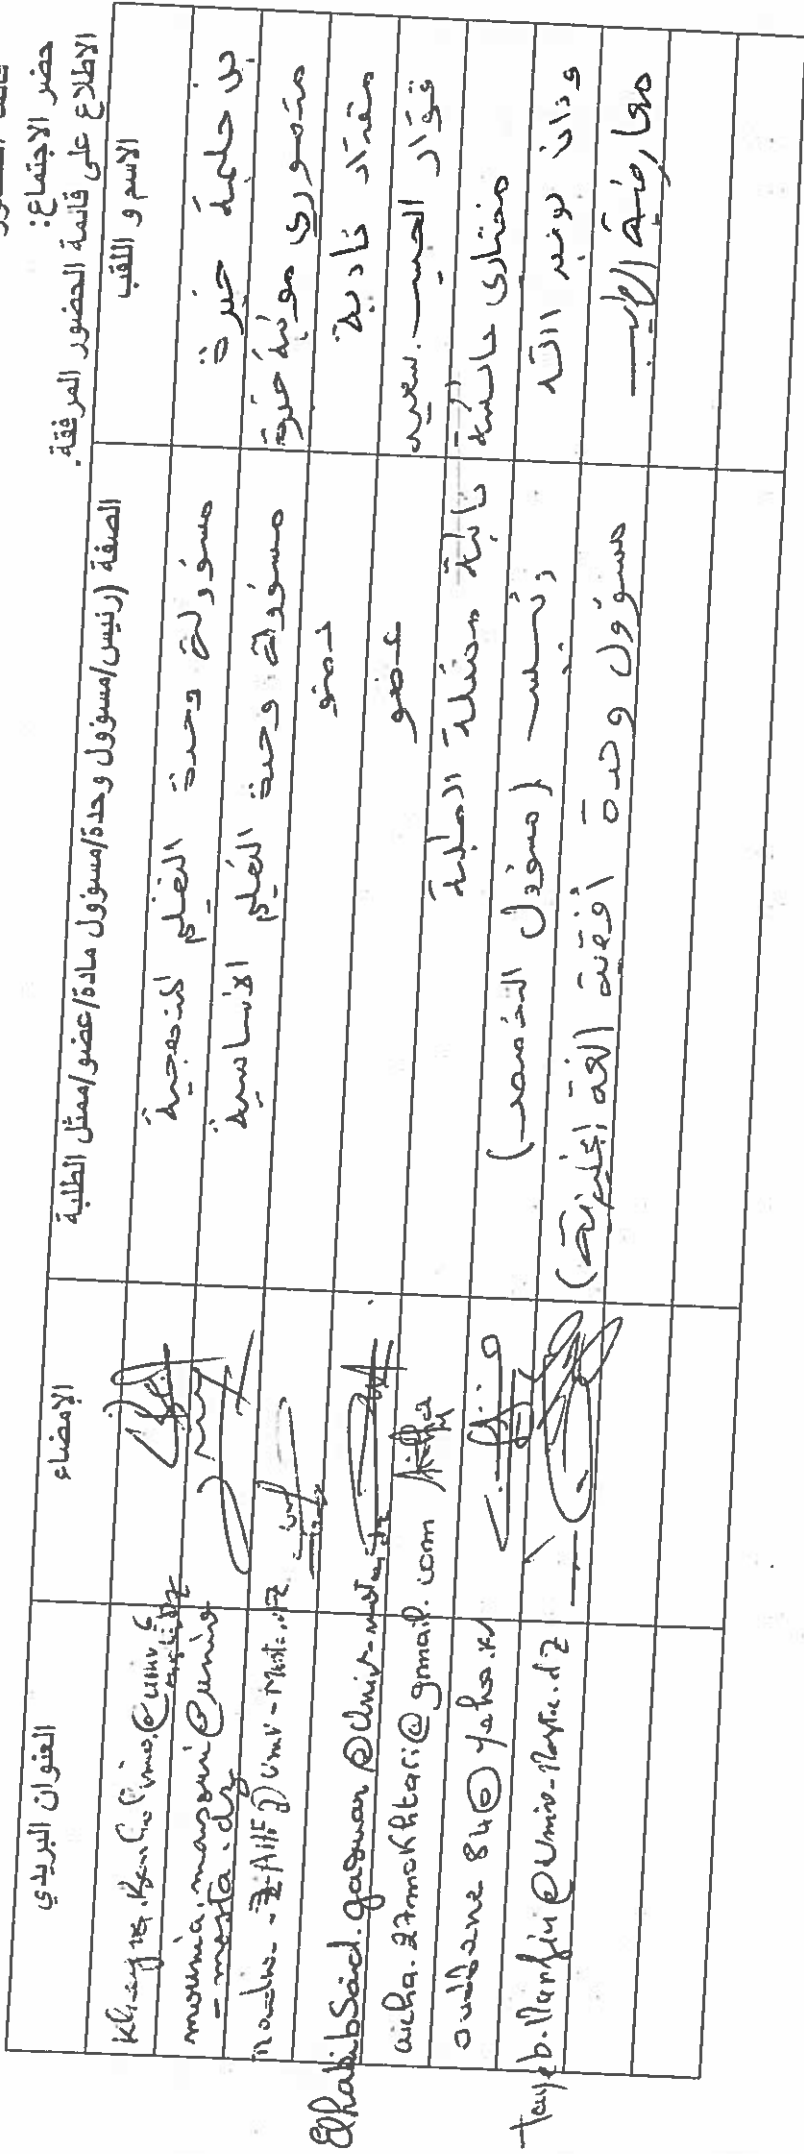 حضر الاجتماع:
الاطلاع على قائمة الحضور المرفقة.
الاسم و اللقب
الصفة (رئيس/مسؤول وحدة/مسؤول مادة/عضو/ممثل الطلبة
الإمضاء
العنوان البريدي
بن حليمة خيرة
مسؤولة وحدة التعليم المنهجية
منصوري مونية خيرة
مسؤولة وحدة التعليم الأساسية
mounia.mansouri@univ
-mosta.dz
مقداد نادية
عضو
قوار الحبيب سعيد
عضو
Elhabibsaid.gaouar@univ-mosta.dz
مختاري عائشة
نائبة ممثلة الطلبة
aicha.27mokhtari@gmail.com
ودان بوعبد الله
رئيس (مسؤول التخصص)
معارفية الطيب
مسؤول وحدة أفقية (لغة إنجليزية)